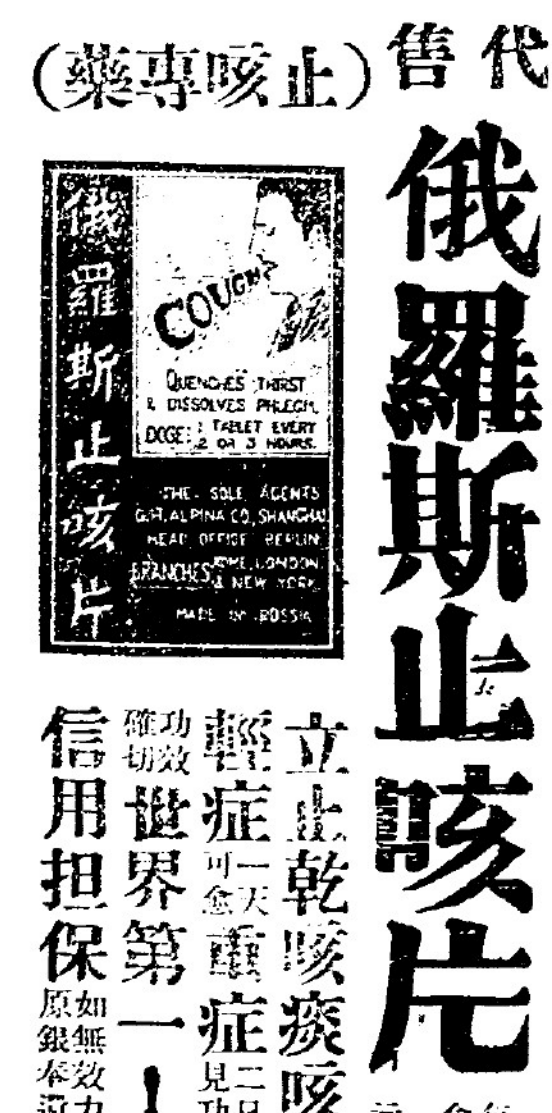 代售
俄羅斯止咳片
(止咳專藥)
俄羅斯止咳片
COUGH
QUENCHES THIRST
& DISSOLVES PHLEGM.
DOGE: 1 TABLET EVERY
2 OR 3 HOURS.
THE SOLE AGENTS
CO, SHANGHAI
HEAD OFFICE BERLIN
BRANCHES ROME, LONDON
& NEW YORK
MADE IN ROSSIA
立止乾咳痰咳
輕症一天可愈重症二日見功
功效確切世界第一!
信用担保如無效力原銀奉